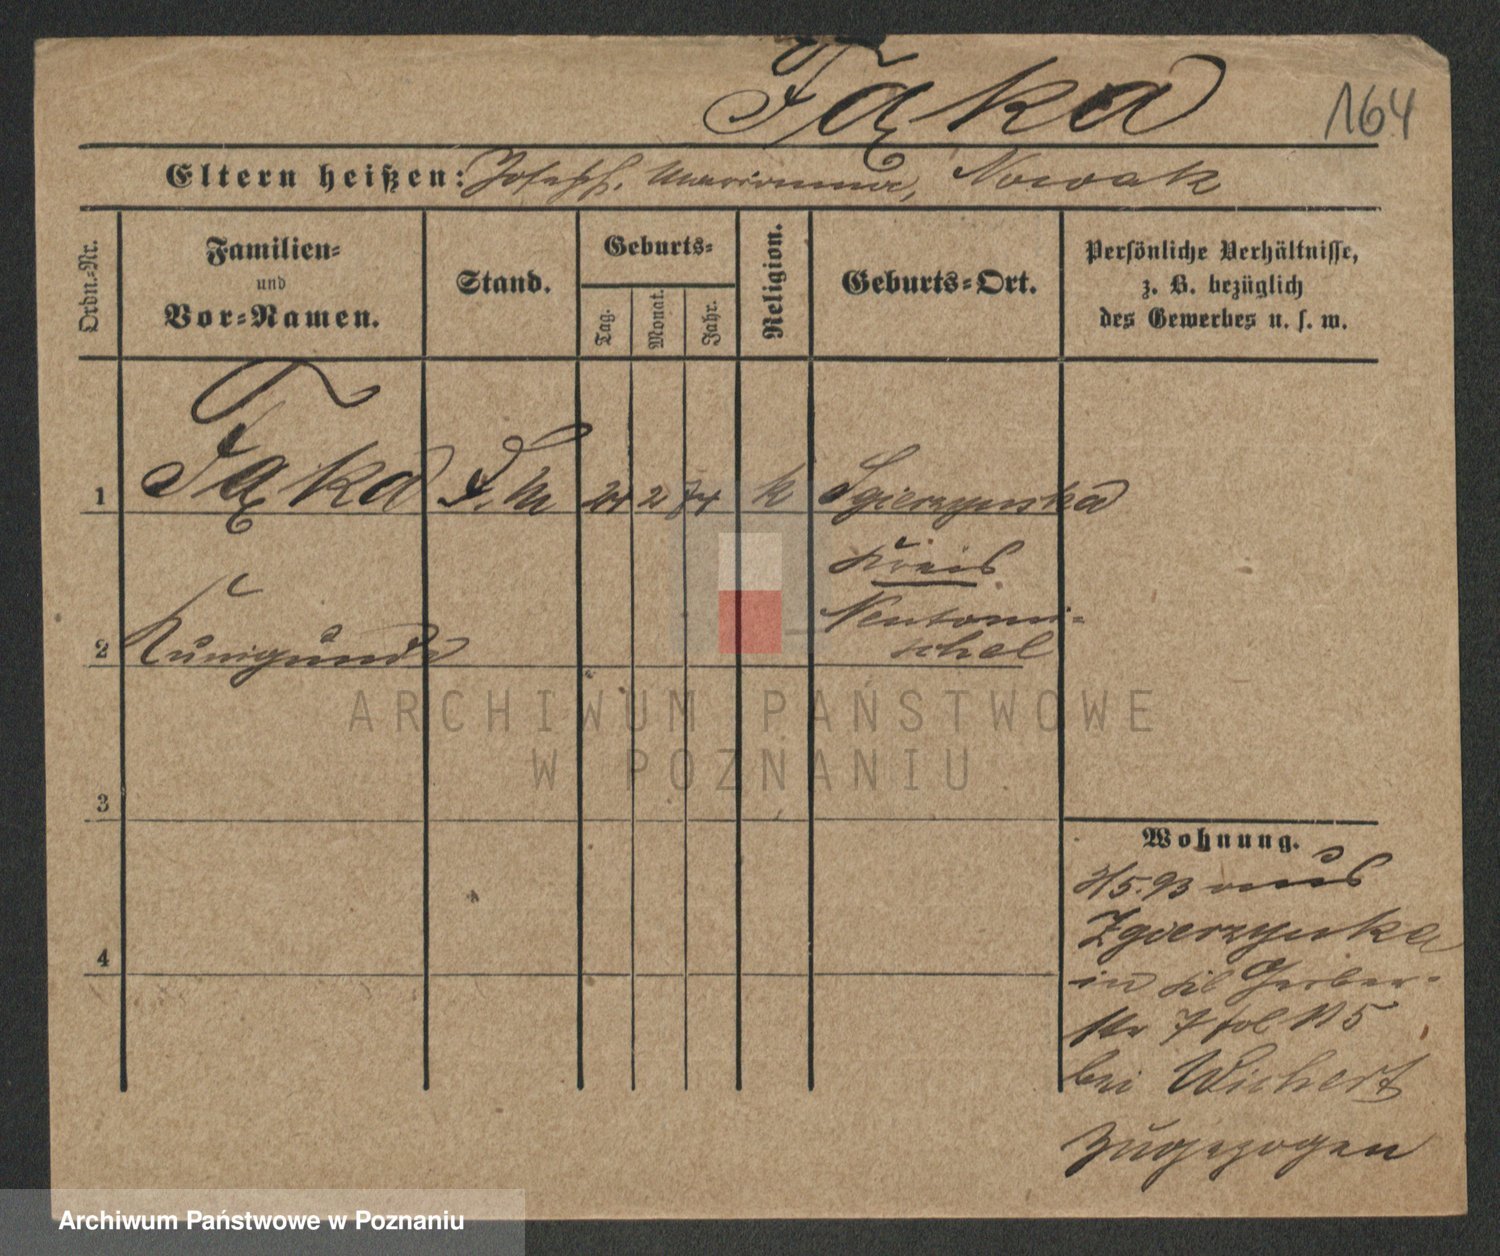 Fąka
164
Eltern heißen: Joseph. Marianna, Nowak
Ordn.-Nr.
Familien-
und
Vor-Namen.
Stand.
Geburts-
Tag.
Monat.
Jahr.
Religion.
Geburts-Ort.
Persönliche Verhältnisse,
z. B. bezüglich
des Gewerbes u. s. w.
1 Fąka 2 74 k Zgierzynka
Kreis
Neutomi-
schel
2 Kunigunde
3
4
Wohnung.
5.93 aus
Zgierzynka
in Gerber-
str 7
bei Wichert
zugezogen
ARCHIWUM PAŃSTWOWE
W POZNANIU
Archiwum Państwowe w Poznaniu